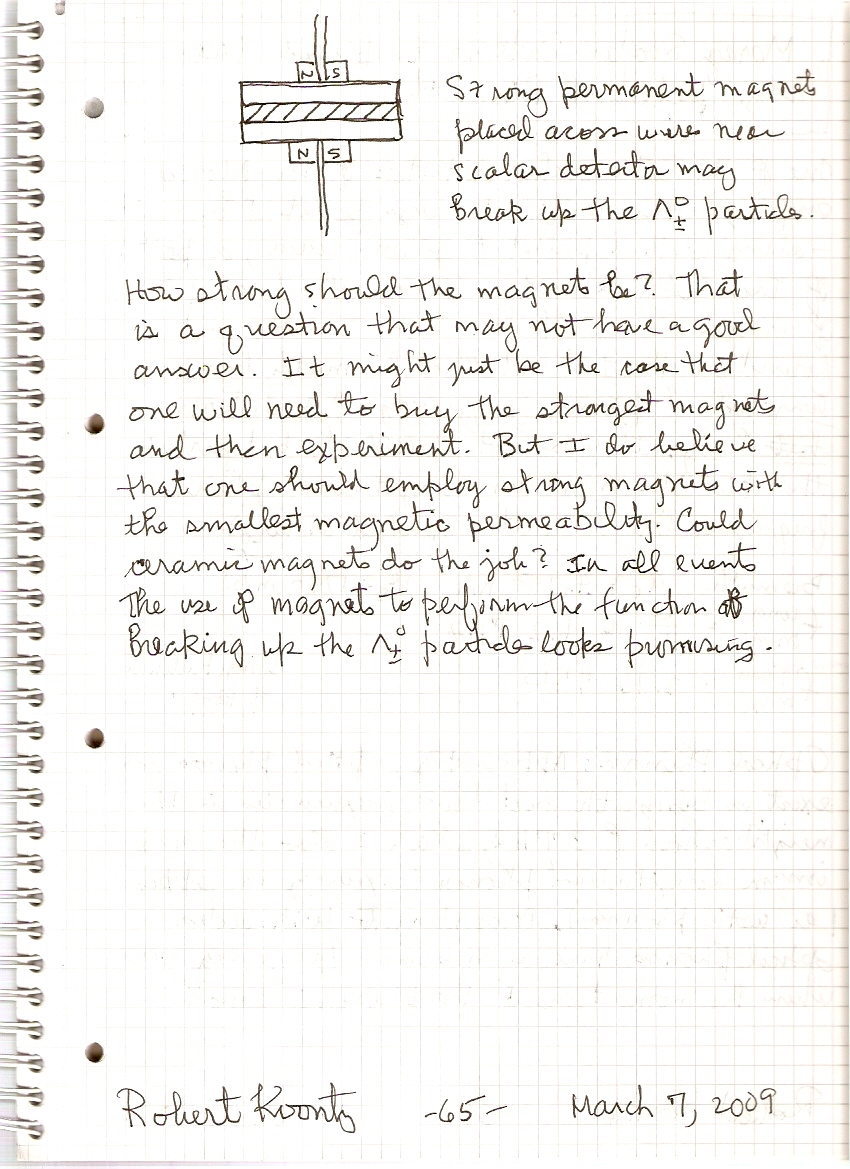 N S
N S
Strong permanent magnets
placed acoss wires near
scalar detector may
Break up the Λ±° particle.
How strong should the magnets be? That
is a question that may not have a good
answer. It might just be the case that
one will need to buy the strongest magnets
and then experiment. But I do believe
that one should employ strong magnets with
the smallest magnetic permeability. Could
ceramic magnets do the job? In all events
The use of magnets to perform the function of
Breaking up the Λ±° particle looks promising.
Robert Koontz -65- March 7, 2009